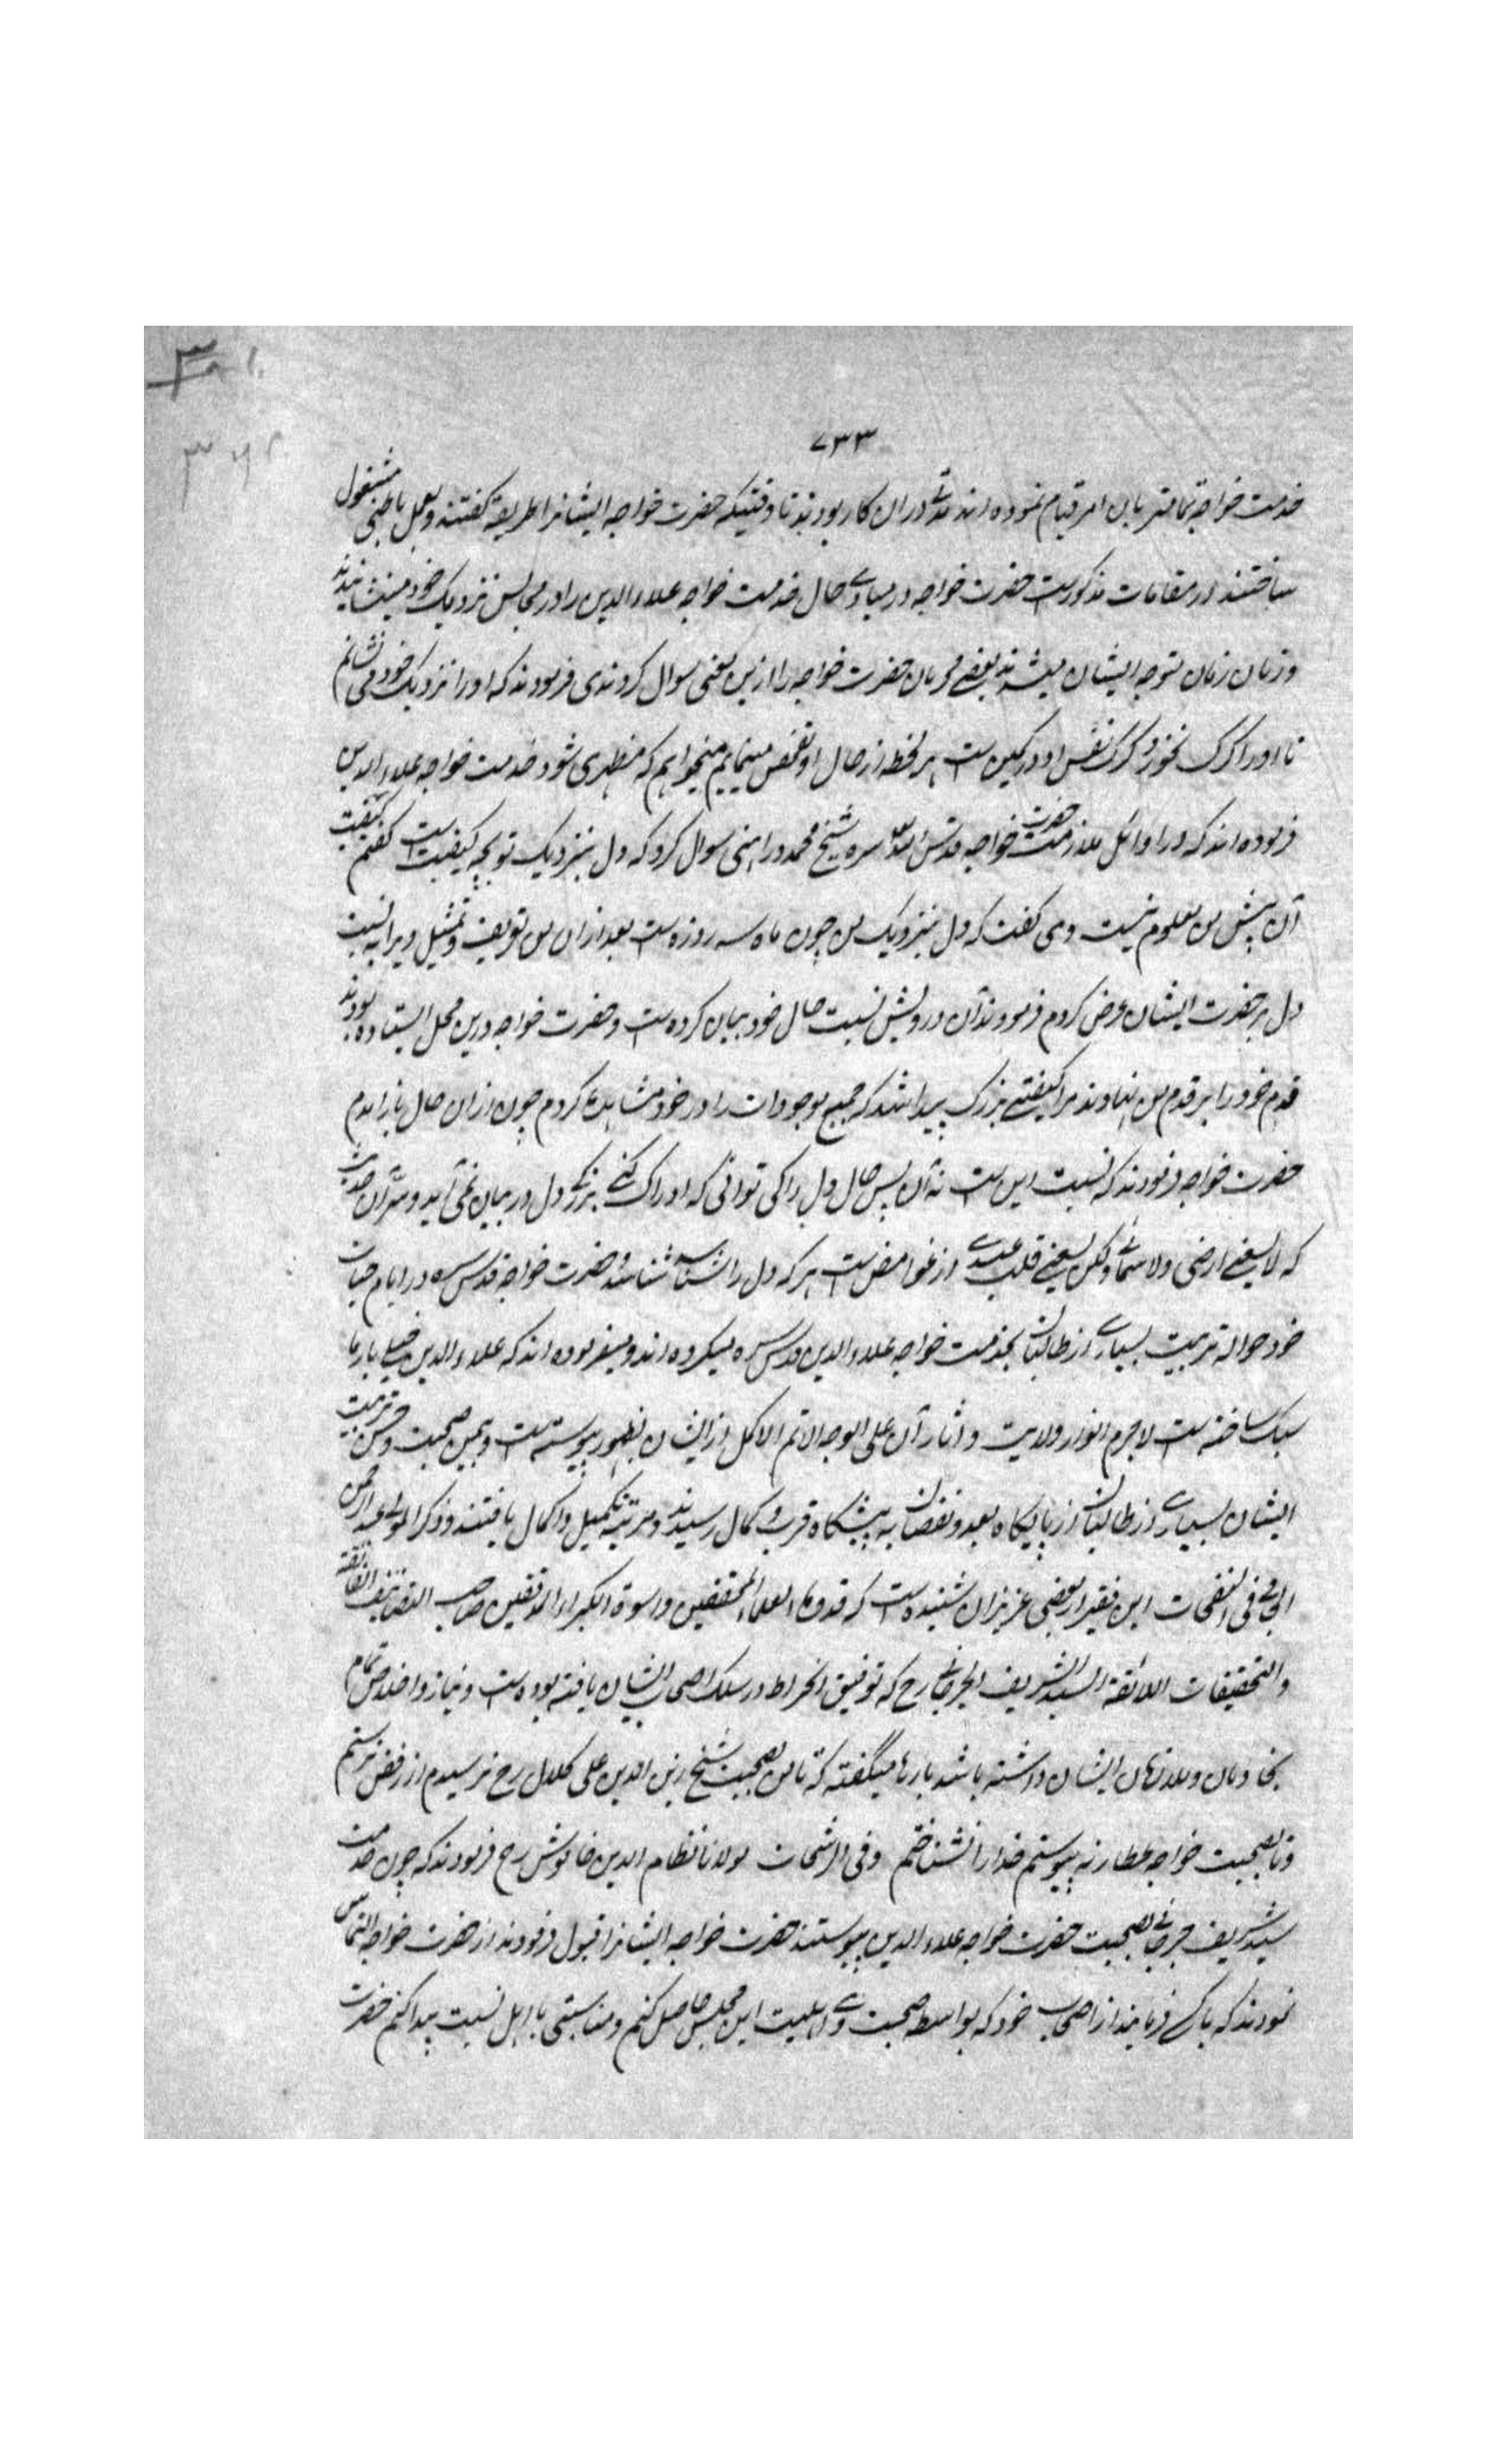 ۷۳۳
خدمت خواجه تمامتر بان امر قیام نموده اند مدتی دران کار بودند تا وقتیکه حضرت خواجه ایشانرا طریقه گفتند و بعمل باطنی مشغول
ساختند در مقامات مذکورست حضرت خواجه در مبادی حال خدمت خواجه علاء الدین را در مجالس نزدیک خود مینشانیدند
و زمان زمان متوجه ایشان میشدند بعضی محرمان حضرت خواجه را ازین معنی سوال کردندی فرمودند که او را نزدیک خود می نشانم
تا او را گرگ نخورد گرگ نفس او در کمین ست هر لحظه از حال او تفحص مینمایم میخواهم که مظهری شود خدمت خواجه علاء الدین
فرموده اند که در اوائل ملازمت حضرت خواجه قدس الله سره شیخ محمد در راهنی سوال کرد که دل بنزدیک تو بچه کیفیت ست گفتم کیفیت
آن پیش من معلوم نیست وی گفت که دل بنزدیک من چون ماه سه روزه ست بعد ازان من تعریف و تمثیل ویرا به نسبت
دل بر حضرت ایشان عرض کردم فرمودند آن درویش نسبت حال خود بیان کرده ست و حضرت خواجه درین محل ایستاده بودند
قدم خود را بر قدم من نهادند مرا کیفیتی بزرگ پیدا شد که جمیع موجودات را در خود مشاهده کردم چون ازان حال باز آمدم
حضرت خواجه فرمودند که نسبت این ست نه آن پس حال دل را کی توانی که ادراک کنی بزرگی دل در بیان نمی آید و سر آن حدیث
که لا یسعنی ارضی ولا سمائی ولکن یسعنی قلب عبدی از غوامض ست هر که دل را شناسد شناسد و حضرت خواجه قدس سره در ایام حیات
خود حواله تربیت بسیاری از طالبان بخدمت خواجه علاء الدین قدس سره میکرده اند و میفرموده اند که علاء الدین خیلی بار ما
سبک ساخته ست لاجرم انوار ولایت و اثار آن علی الوجه الاتم الاکمل از ایشان بظهور پیوسته ست و بیمن صحبت و حسن تربیت
ایشان بسیاری از طالبان از پایگاه بعد و نقصان به پیشگاه قرب و کمال رسیدند و مرتبه تکمیل و اکمال یافتند و ذکر المولی عبد الرحمن
الجامی فی النفحات این فقیر از بعضی عزیزان شنیده ست که قدوة العلماء المحققین و اسوة الکبراء المدققین صاحب التصانیف الفائقة
والتحقیقات اللائقة السید الشریف الجرجانی رح که توفیق انخراط در سلک اصحاب ایشان یافته بوده ست و نیاز و اخلاص تمام
بخادمان و ملازمان ایشان داشته باشد بارها میگفته که تا من بصحبت شیخ زین الدین علی کلال رح نرسیدم از رفض نرستم
و تا بصحبت خواجه عطار نه پیوستم خدا را نشناختم و فی الرشحات مولانا نظام الدین خاموش رح فرمودند که چون خدمت
سید شریف جرجانی بصحبت حضرت خواجه علاء الدین پیوستند حضرت خواجه ایشانرا قبول فرمودند از حضرت خواجه التماس
نمودند که با کسی فرمایند از اصحاب خود که بواسطه صحبت وی اهلیت این مجلس حاصل کنم و مناسبتی با اهل نسبت پیدا کنم حضرت